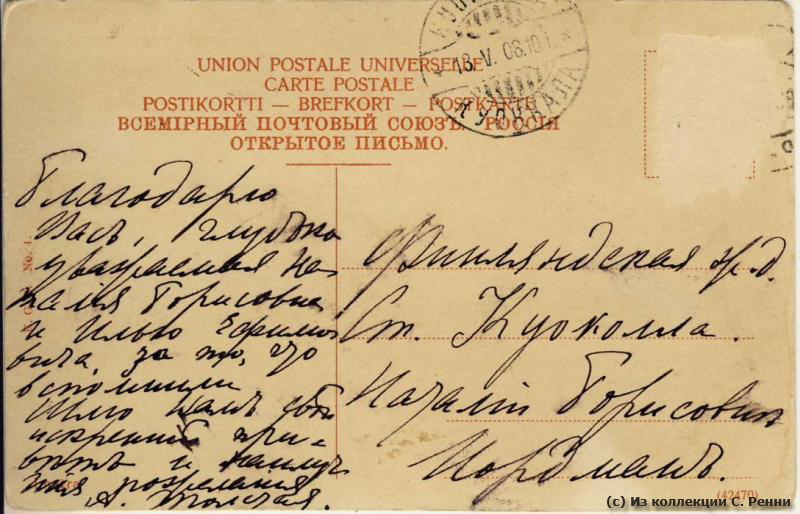 UNION POSTALE UNIVERSELLE
CARTE POSTALE
POSTIKORTTI — BREFKORT — POSTKARTE
ВСЕМІРНЫЙ ПОЧТОВЫЙ СОЮЗЪ. РОССІЯ
ОТКРЫТОЕ ПИСЬМО.
18.V.08.10
КУОККАЛА
Благодарю
Васъ, глубоко
уважаемая На
талія Борисовна
и Илью Ефимо
вича, за то, что
вспомнили
Шлю Вамъ
искренній при-
вѣтъ и наилуч
шія пожеланія
А. Толстая.
Финляндская ж.д.
Ст. Куоккала.
Наталіи Борисовнѣ
Нордманъ.
No. 4.
(42470)
(с) Из коллекции С. Ренни